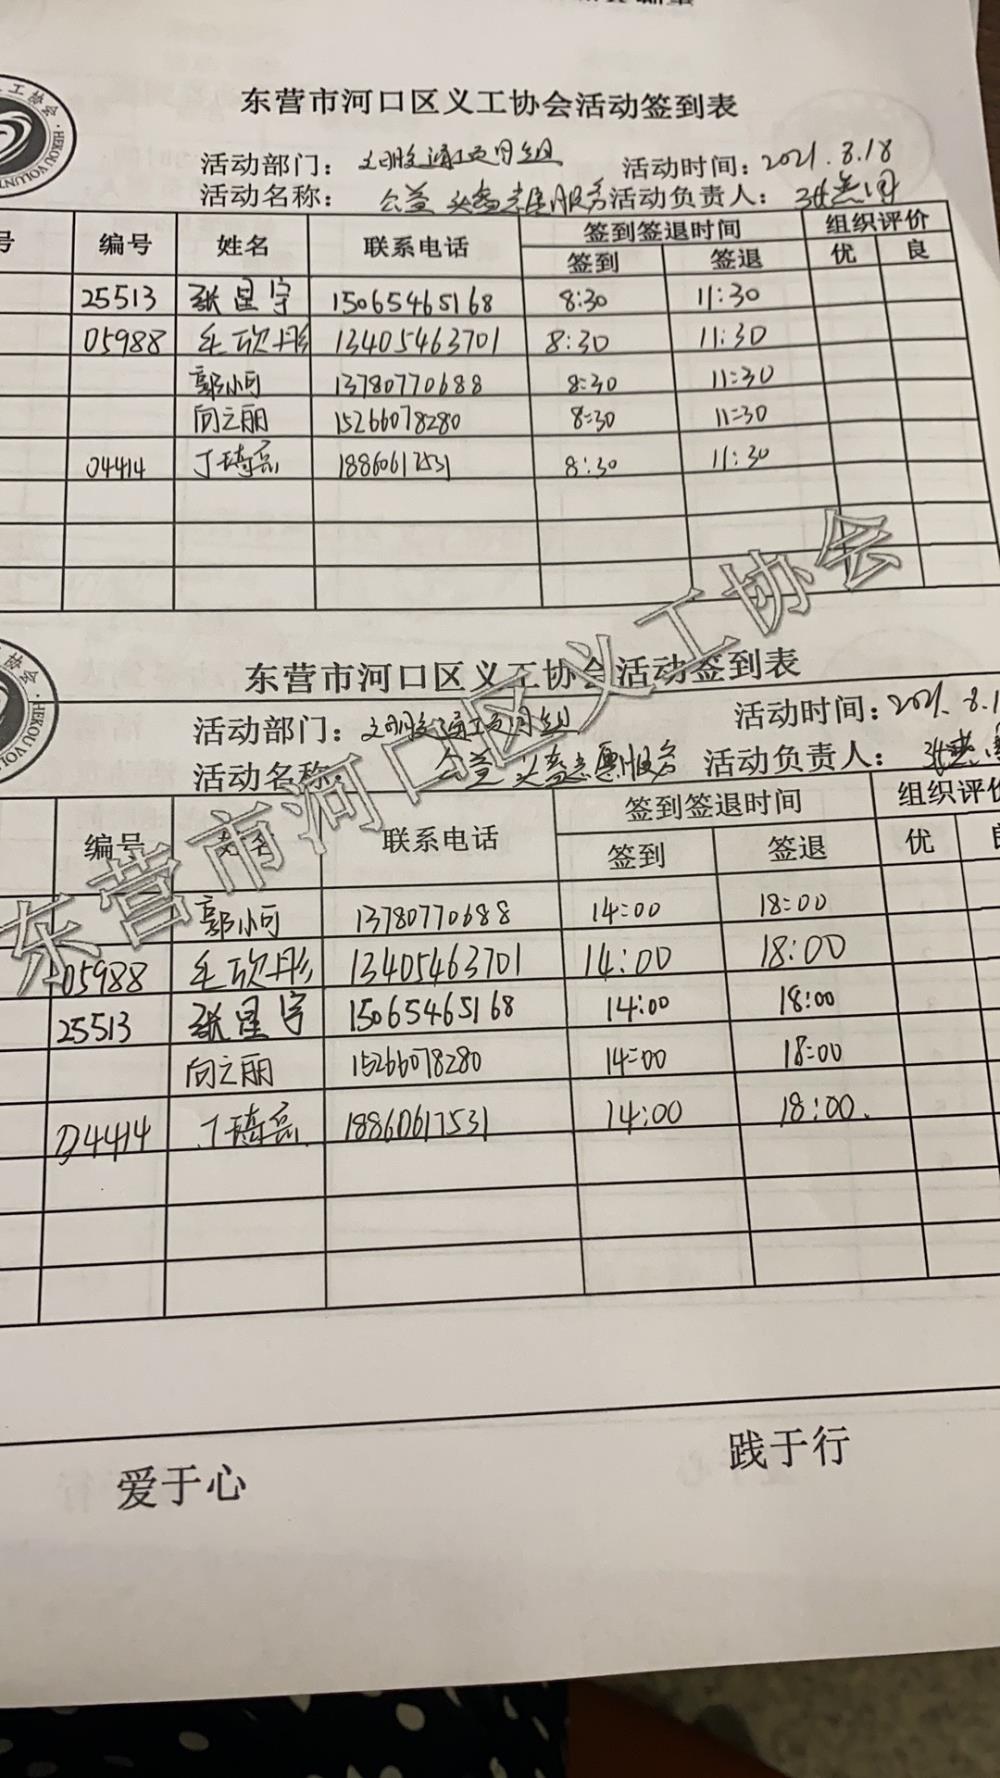 东营市河口区义工协会活动签到表
活动部门： 文明交通项目组 活动时间：2021.8.18
活动名称： 公益头盔志愿服务 活动负责人：
号 编号 姓名 联系电话 签到签退时间 组织评价
签到 签退 优 良
25513 张星宇 15065465168 8:30 11:30
05988 13405463701 8:30 11:30
郭小可 13780770688 8:30 11:30
向之丽 15266078280 8:30 11:30
04414 丁琦磊 18860617531 8:30 11:30
东营市河口区义工协会
东营市河口区义工协会活动签到表
活动部门： 文明交通项目组 活动时间：2021.8.1
活动名称： 公益头盔志愿服务 活动负责人：
编号 姓名 联系电话 签到签退时间 组织评价
签到 签退 优 良
郭小可 13780770688 14:00 18:00
05988 13405463701 14:00 18:00
25513 张星宇 15065465168 14:00 18:00
向之丽 15266078280 14:00 18:00
04414 丁琦磊 18860617531 14:00 18:00.
爱于心 践于行